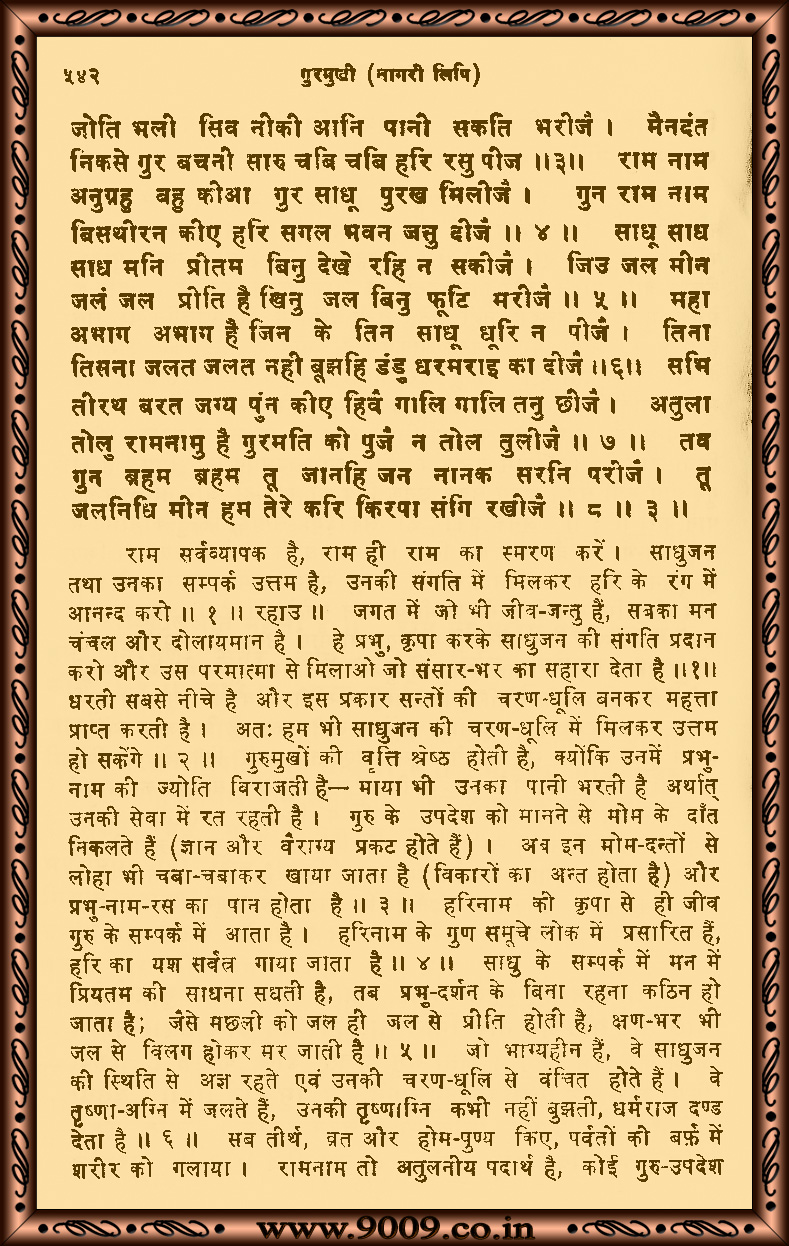 ५४२ गुरमुखी (नागरी लिपि)
जोति भली सिव नीकी आनि पानी सकति भरीजै । मैनदंत
निकसे गुर बचनी सारु चबि चबि हरि रसु पीज ॥३॥ राम नाम
अनुग्रहु बहु कीआ गुर साधू पुरख मिलीजै । गुन राम नाम
बिसथीरन कीए हरि सगल भवन जसु दीजै ॥ ४ ॥ साधू साध
साध मनि प्रीतम बिनु देखे रहि न सकीजै । जिउ जल मीन
जलं जल प्रीति है खिनु जल बिनु फूटि मरीजै ॥ ५ ॥ महा
अभाग अभाग है जिन के तिन साधू धूरि न पीजै । तिना
तिसना जलत जलत नही बूझहि डंडु धरमराइ का दीजै ॥६॥ सभि
तीरथ बरत जग्य पुंन कीए हिवै गालि गालि तनु छीजै । अतुला
तोलु रामनामु है गुरमति को पुजै न तोल तुलीजै ॥ ७ ॥ तव
गुन ब्रहम ब्रहम तू जानहि जन नानक सरनि परीजै । तू
जलनिधि मीन हम तेरे करि किरपा संगि रखीजै ॥ ८ ॥ ३ ॥
राम सर्वव्यापक है, राम ही राम का स्मरण करें । साधुजन
तथा उनका सम्पर्क उत्तम है, उनकी संगति में मिलकर हरि के रंग में
आनन्द करो ॥ १ ॥ रहाउ ॥ जगत में जो भी जीव-जन्तु हैं, सबका मन
चंचल और दोलायमान है । हे प्रभु, कृपा करके साधुजन की संगति प्रदान
करो और उस परमात्मा से मिलाओ जो संसार-भर का सहारा देता है ॥१॥
धरती सबसे नीचे है और इस प्रकार सन्तों की चरण-धूलि बनकर महत्ता
प्राप्त करती है । अतः हम भी साधुजन की चरण-धूलि में मिलकर उत्तम
हो सकेंगे ॥ २ ॥ गुरुमुखों की वृत्ति श्रेष्ठ होती है, क्योंकि उनमें प्रभु-
नाम की ज्योति विराजती है— माया भी उनका पानी भरती है अर्थात्
उनकी सेवा में रत रहती है । गुरु के उपदेश को मानने से मोम के दाँत
निकलते हैं (ज्ञान और वैराग्य प्रकट होते हैं) । अब इन मोम-दन्तों से
लोहा भी चबा-चबाकर खाया जाता है (विकारों का अन्त होता है) और
प्रभु-नाम-रस का पान होता है ॥ ३ ॥ हरिनाम की कृपा से ही जीव
गुरु के सम्पर्क में आता है । हरिनाम के गुण समूचे लोक में प्रसारित हैं,
हरि का यश सर्वत्र गाया जाता है ॥ ४ ॥ साधु के सम्पर्क में मन में
प्रियतम की साधना सधती है, तब प्रभु-दर्शन के बिना रहना कठिन हो
जाता है; जैसे मछली को जल ही जल से प्रीति होती है, क्षण-भर भी
जल से विलग होकर मर जाती है ॥ ५ ॥ जो भाग्यहीन हैं, वे साधुजन
की स्थिति से अज्ञ रहते एवं उनकी चरण-धूलि से वंचित होते हैं । वे
तृष्णा-अग्नि में जलते हैं, उनकी तृष्णाग्नि कभी नहीं बुझती, धर्मराज दण्ड
देता है ॥ ६ ॥ सब तीर्थ, व्रत और होम-पुण्य किए, पर्वतों की बर्फ़ में
शरीर को गलाया । रामनाम तो अतुलनीय पदार्थ है, कोई गुरु-उपदेश
www.9009.co.in